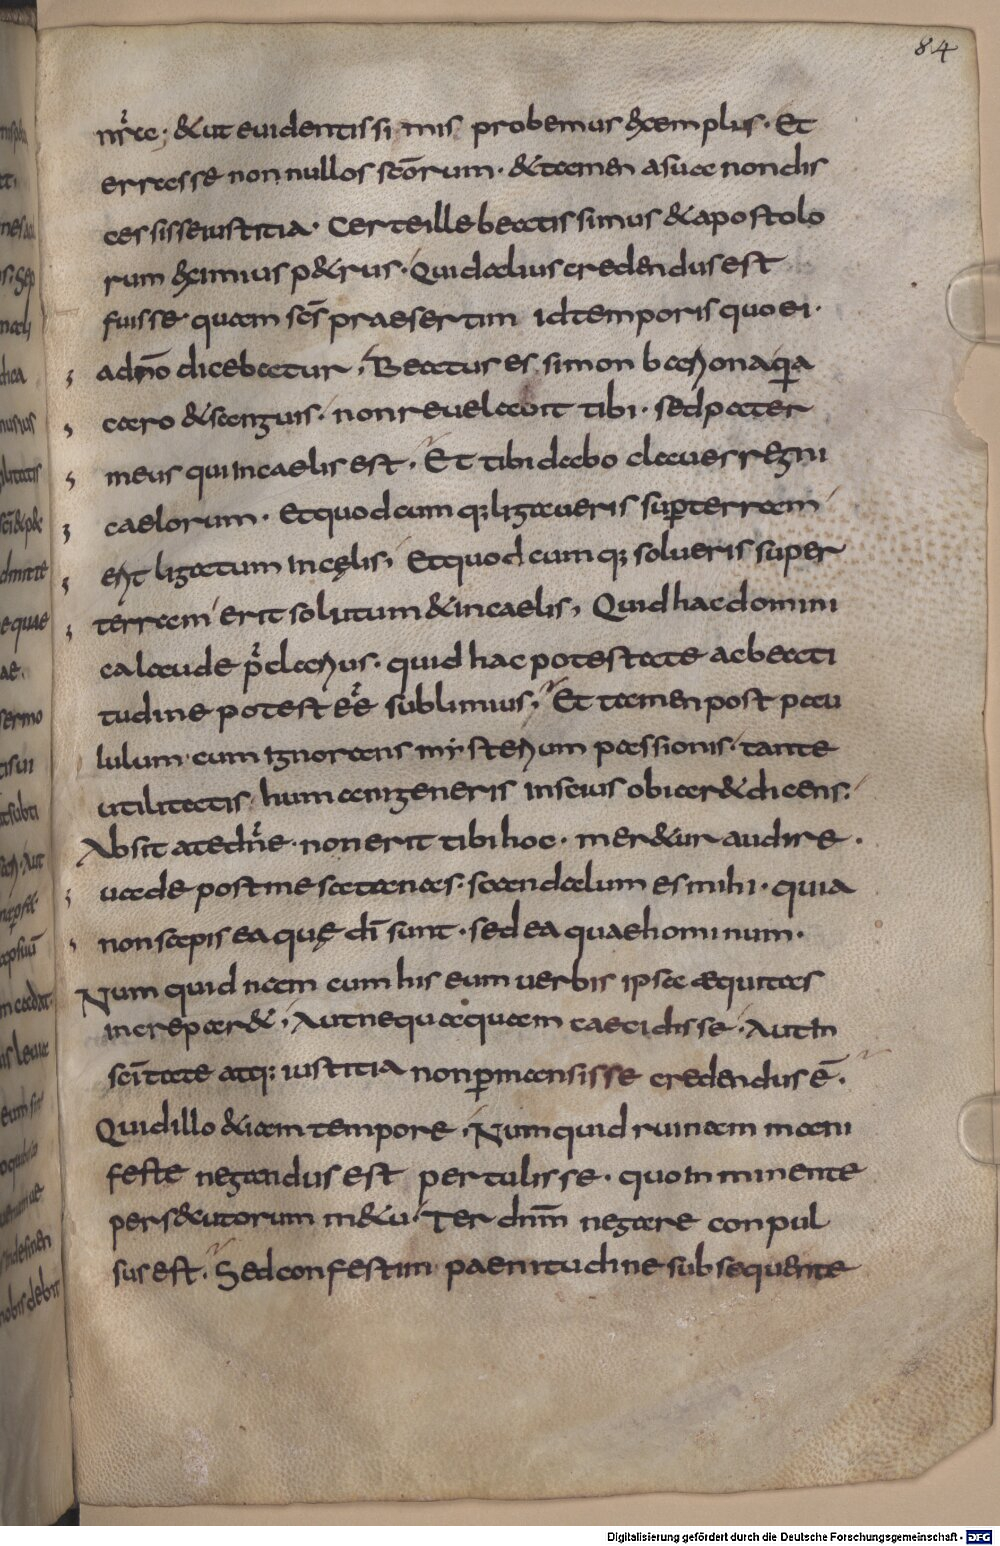 84
nr̄ae; & ut euidentissimis probemus &xemplis· Et
errasse nonnullos sc̄orum· & tamen a sua non dis
cessisse iustitia· Certe ille beatissimus & apostolo
rum &ximius p&rus· Quid alius credendus est
fuisse quam sc̄s praesertim id temporis quo ei·
a dn̄o dicebatur, Beatus es simon bariona q̄a
caro & sanguis· non reuelauit tibi· sed pater
meus qui in caelis est, Et tibi dabo claues regni
caelorum· Et quodcumq; ligaueris sup terram
erit ligatum in cęlis, Et quodcumq; solueris super
terram erit solutum & in caelis, Quid hac domini
ca laude p̄clarius· quid hac potestate ac beati
tudine potest eē sublimius, Et tamen post pau
lulum cum ignorans mysterium passionis tante
utilitatis humani generis inscius obicer& dicens:
Absit a te dn̄e· non erit tibi hoc· mer&ur audire·
uade post me satanas· scandalum es mihi· quia
non sapis ea quę dī sunt· sed ea quae hominum·
Num quidnam cum his eum uerbis ipsa aequitas
increpar&, Aut nequaquam caecidisse, Aut in
scītate atq; iustitia non pmansisse credendus ē·
Quid illo &iam tempore, Numquid ruinam mani
feste negandus est pertulisse· quo inminente
pers&utorum m&u· Ter dnm̄ negare conpul
sus est, Sed confestim paenitudine subsequente
Digitalisierung gefördert durch die Deutsche Forschungsgemeinschaft - DFG